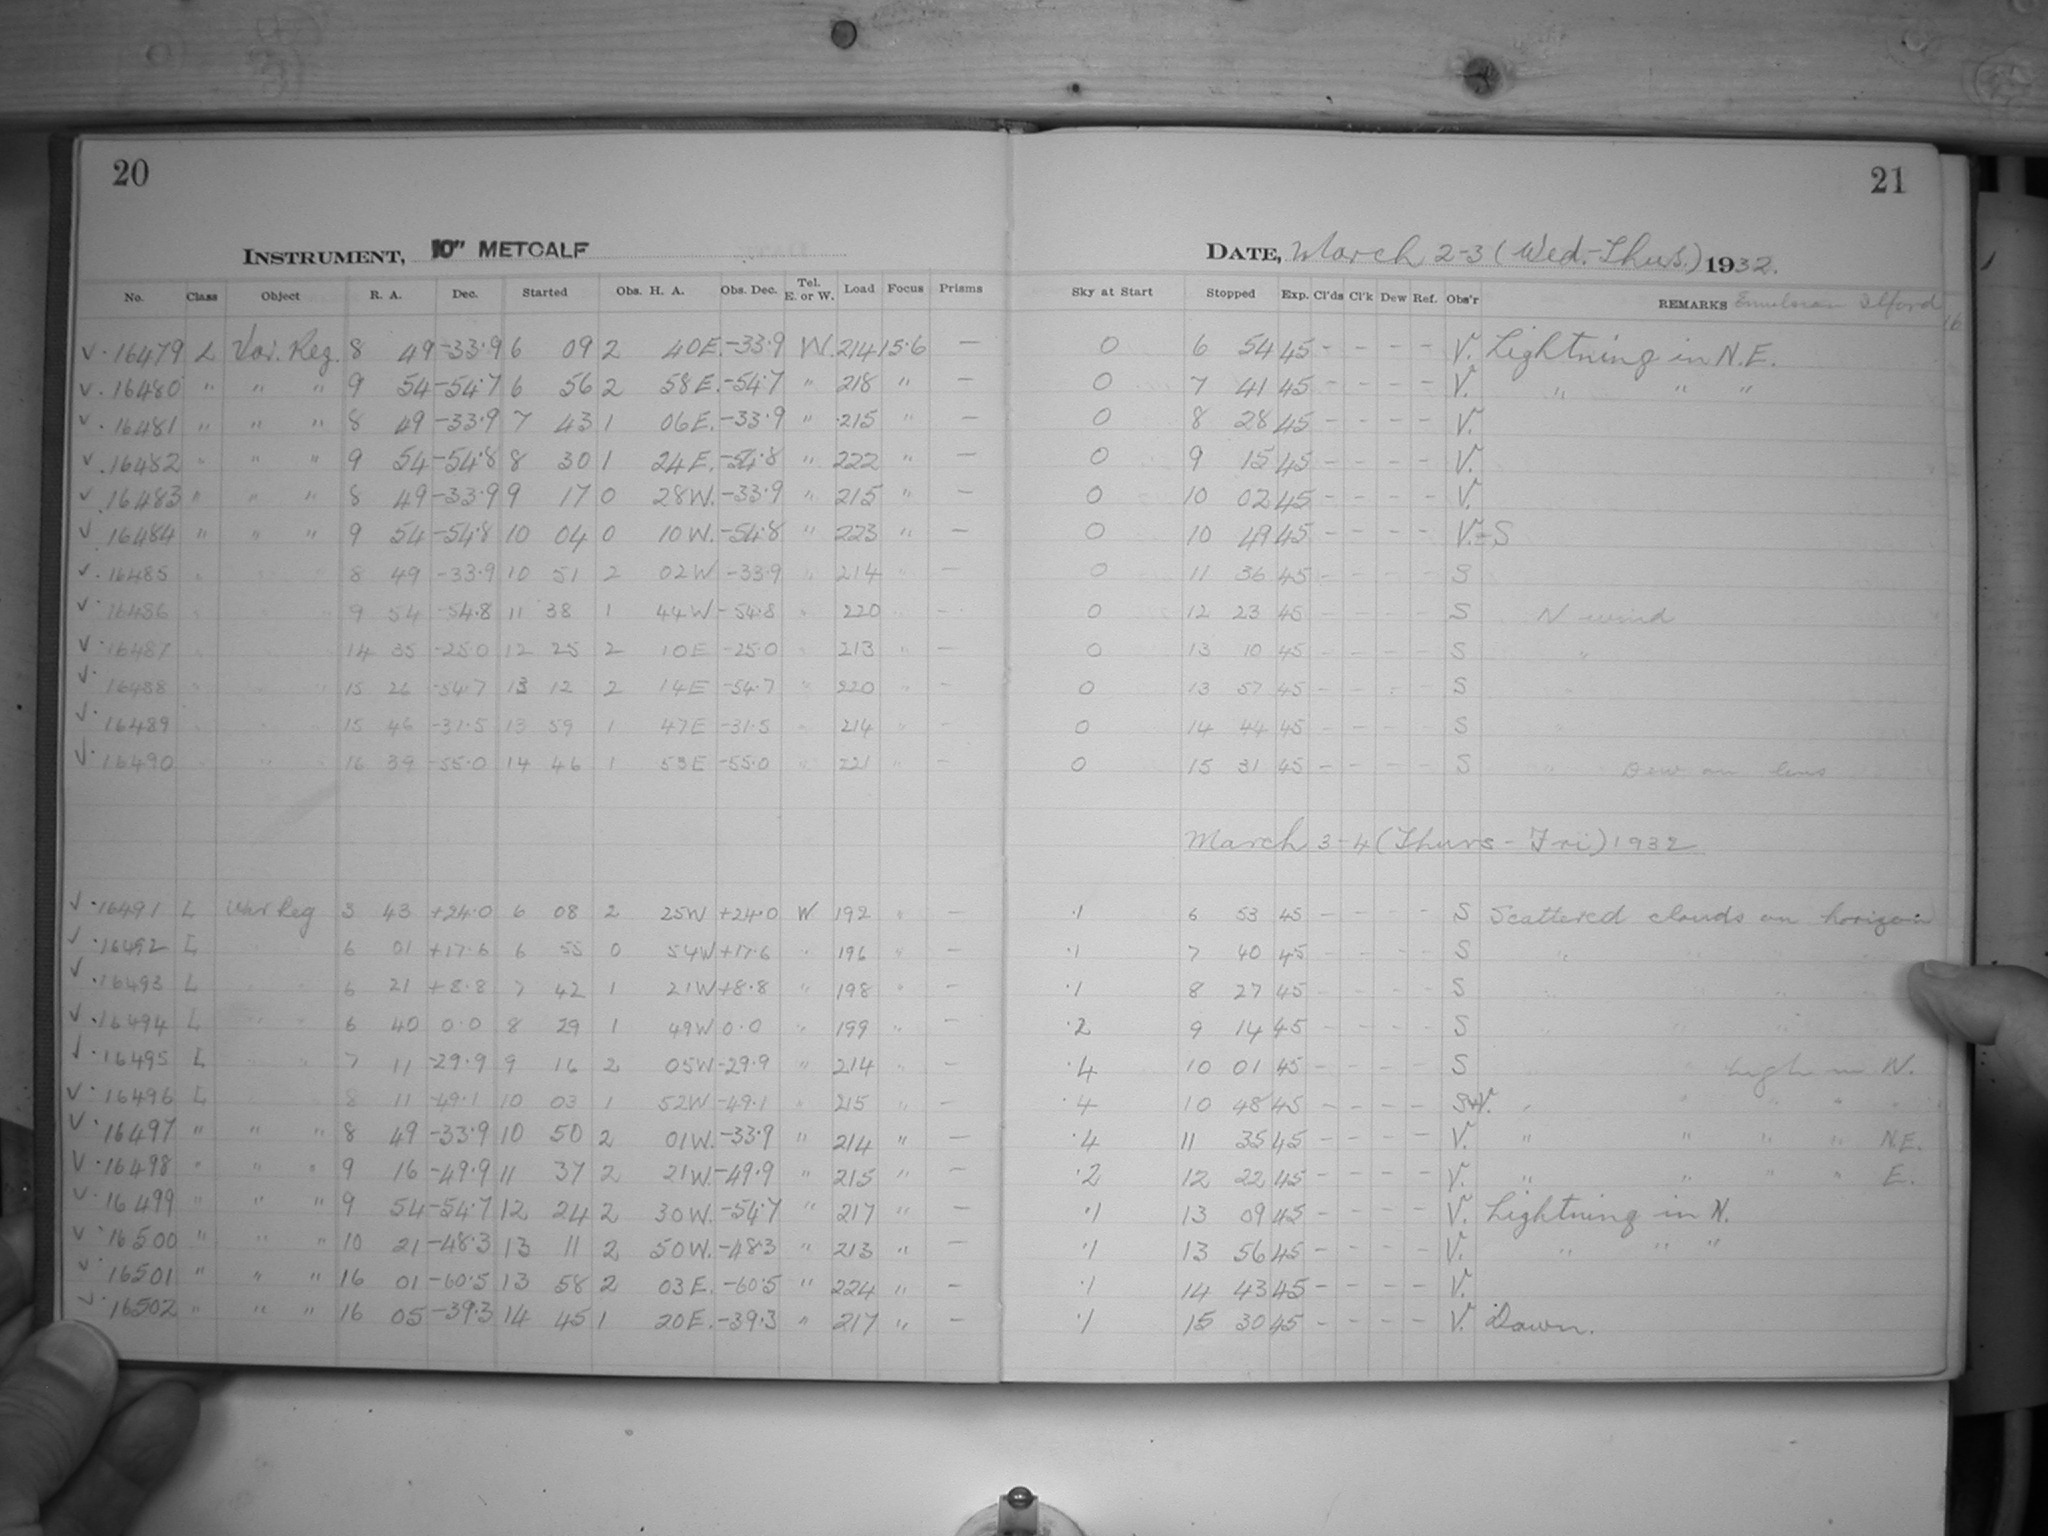 20
21
INSTRUMENT, 10" METCALF
DATE, March 2-3 (Wed.-Thurs.) 1932.
No. Class Object R. A. Dec. Started Obs. H. A. Obs. Dec. Tel. E. or W. Load Focus Prisms Sky at Start Stopped Exp. Cl'ds Cl'k Dew Ref. Obs'r REMARKS Emulsion Ilford 16
√ · 16479 L Var. Reg. 8 49 -33·9 6 09 2 40E. -33·9 W. 214 15·6 — 0 6 54 45 - - - - V. Lightning in N.E.
√ · 16480 " " " 9 54 -54·7 6 56 2 58E. -54·7 " 218 " — 0 7 41 45 - - - - V. " " "
√ · 16481 " " " 8 49 -33·9 7 43 1 06E. -33·9 " 215 " — 0 8 28 45 - - - - V.
√ · 16482 " " " 9 54 -54·8 8 30 1 24E. -54·8 " 222 " — 0 9 15 45 - - - - V.
√ 16483 " " " 8 49 -33·9 9 17 0 28W. -33·9 " 215 " — 0 10 02 45 - - - - V.
√ · 16484 " " " 9 54 -54·8 10 04 0 10W. -54·8 " 223 " — 0 10 49 45 - - - - V.-S
√ · 16485 " " " 8 49 -33.9 10 51 2 02W -33.9 " 214 " — 0 11 36 45 - - - - S
√ · 16486 " " " 9 54 -54.8 11 38 1 44W -54.8 " 220 " — 0 12 23 45 - - - - S N wind
√ · 16487 " " " 14 35 -25.0 12 25 2 10E -25.0 " 213 " — 0 13 10 45 - - - - S "
√ · 16488 " " " 15 26 -54.7 13 12 2 14E -54.7 " 220 " — 0 13 57 45 - - - - S "
√ · 16489 " " " 15 46 -31.5 13 59 1 47E -31.5 " 214 " — 0 14 44 45 - - - - S "
√ · 16490 " " " 16 39 -55.0 14 46 1 53E -55.0 " 221 " — 0 15 31 45 - - - - S " Dew on lens
March 3-4 (Thurs - Fri) 1932
√ · 16491 L Var Reg 3 43 +24.0 6 08 2 25W +24.0 W 192 " — ·1 6 53 45 - - - - S Scattered clouds on horizon
√ · 16492 L " " 6 01 +17.6 6 55 0 54W +17.6 " 196 " — ·1 7 40 45 - - - - S " " " "
√ · 16493 L " " 6 21 +8.8 7 42 1 21W +8.8 " 198 " — ·1 8 27 45 - - - - S " " " "
√ · 16494 L " " 6 40 0.0 8 29 1 49W 0.0 " 199 " — ·2 9 14 45 - - - - S
√ · 16495 L " " 7 11 -29.9 9 16 2 05W -29.9 " 214 " — ·4 10 01 45 - - - - S " high in N.
√ · 16496 L " " 8 11 -49.1 10 03 1 52W -49.1 " 215 " — ·4 10 48 45 - - - - S+V. " " " " "
√ · 16497 " " " 8 49 -33·9 10 50 2 01W. -33·9 " 214 " — ·4 11 35 45 - - - - V. " " " " N.E.
√ · 16498 " " " 9 16 -49·9 11 37 2 21W. -49·9 " 215 " — ·2 12 22 45 - - - - V. " " " " E.
√ · 16499 " " " 9 54 -54·7 12 24 2 30W. -54·7 " 217 " — ·1 13 09 45 - - - - V. Lightning in N.
√ · 16500 " " " 10 21 -48·3 13 11 2 50W. -48·3 " 213 " — ·1 13 56 45 - - - - V. " " "
√ · 16501 " " " 16 01 -60·5 13 58 2 03E. -60·5 " 224 " — ·1 14 43 45 - - - - V.
√ · 16502 " " " 16 05 -39·3 14 45 1 20E. -39·3 " 217 " — ·1 15 30 45 - - - - V. Dawn.